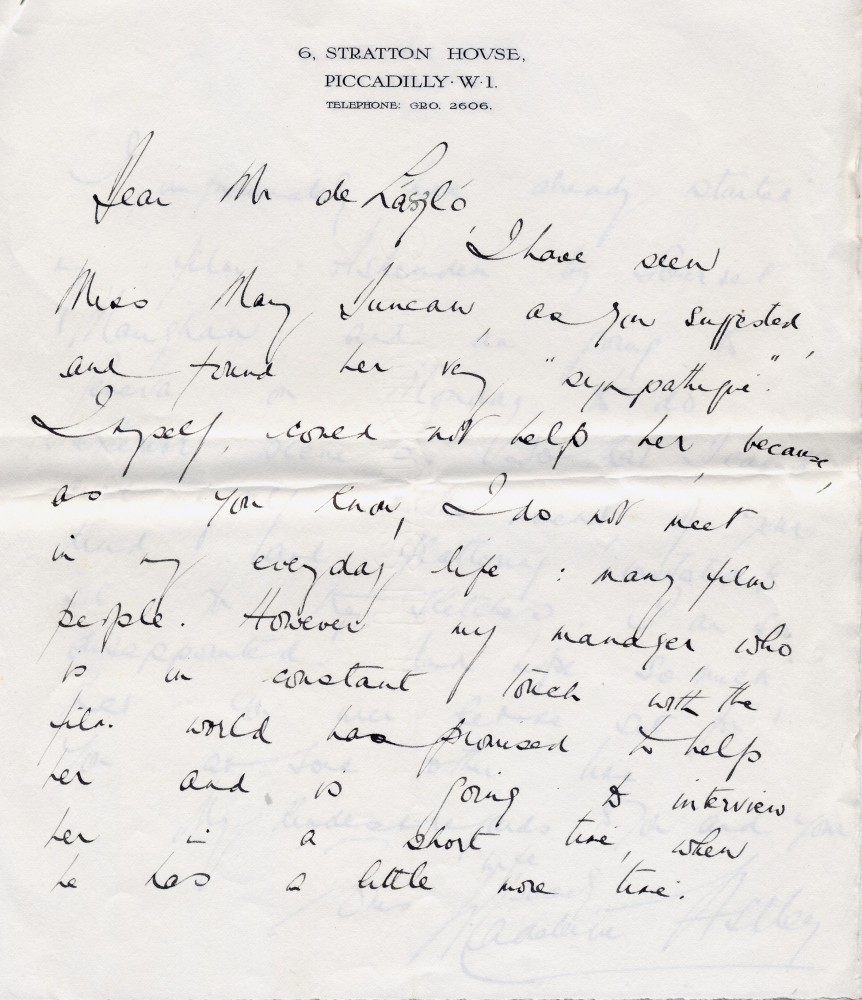 6, STRATTON HOUSE,
PICCADILLY·W·1.
TELEPHONE: GRO. 2606.
Dear Mr de László,
I have seen
Miss May Duncan, as you suggested,
and found her very "sympathique".
I myself, could not help her because,
as you know, I do not meet
in my everyday life : many film
people. However my manager who
is in constant touch with the
film world has promised to help
her and is going to interview
her in a short time, when
he has a little more time.